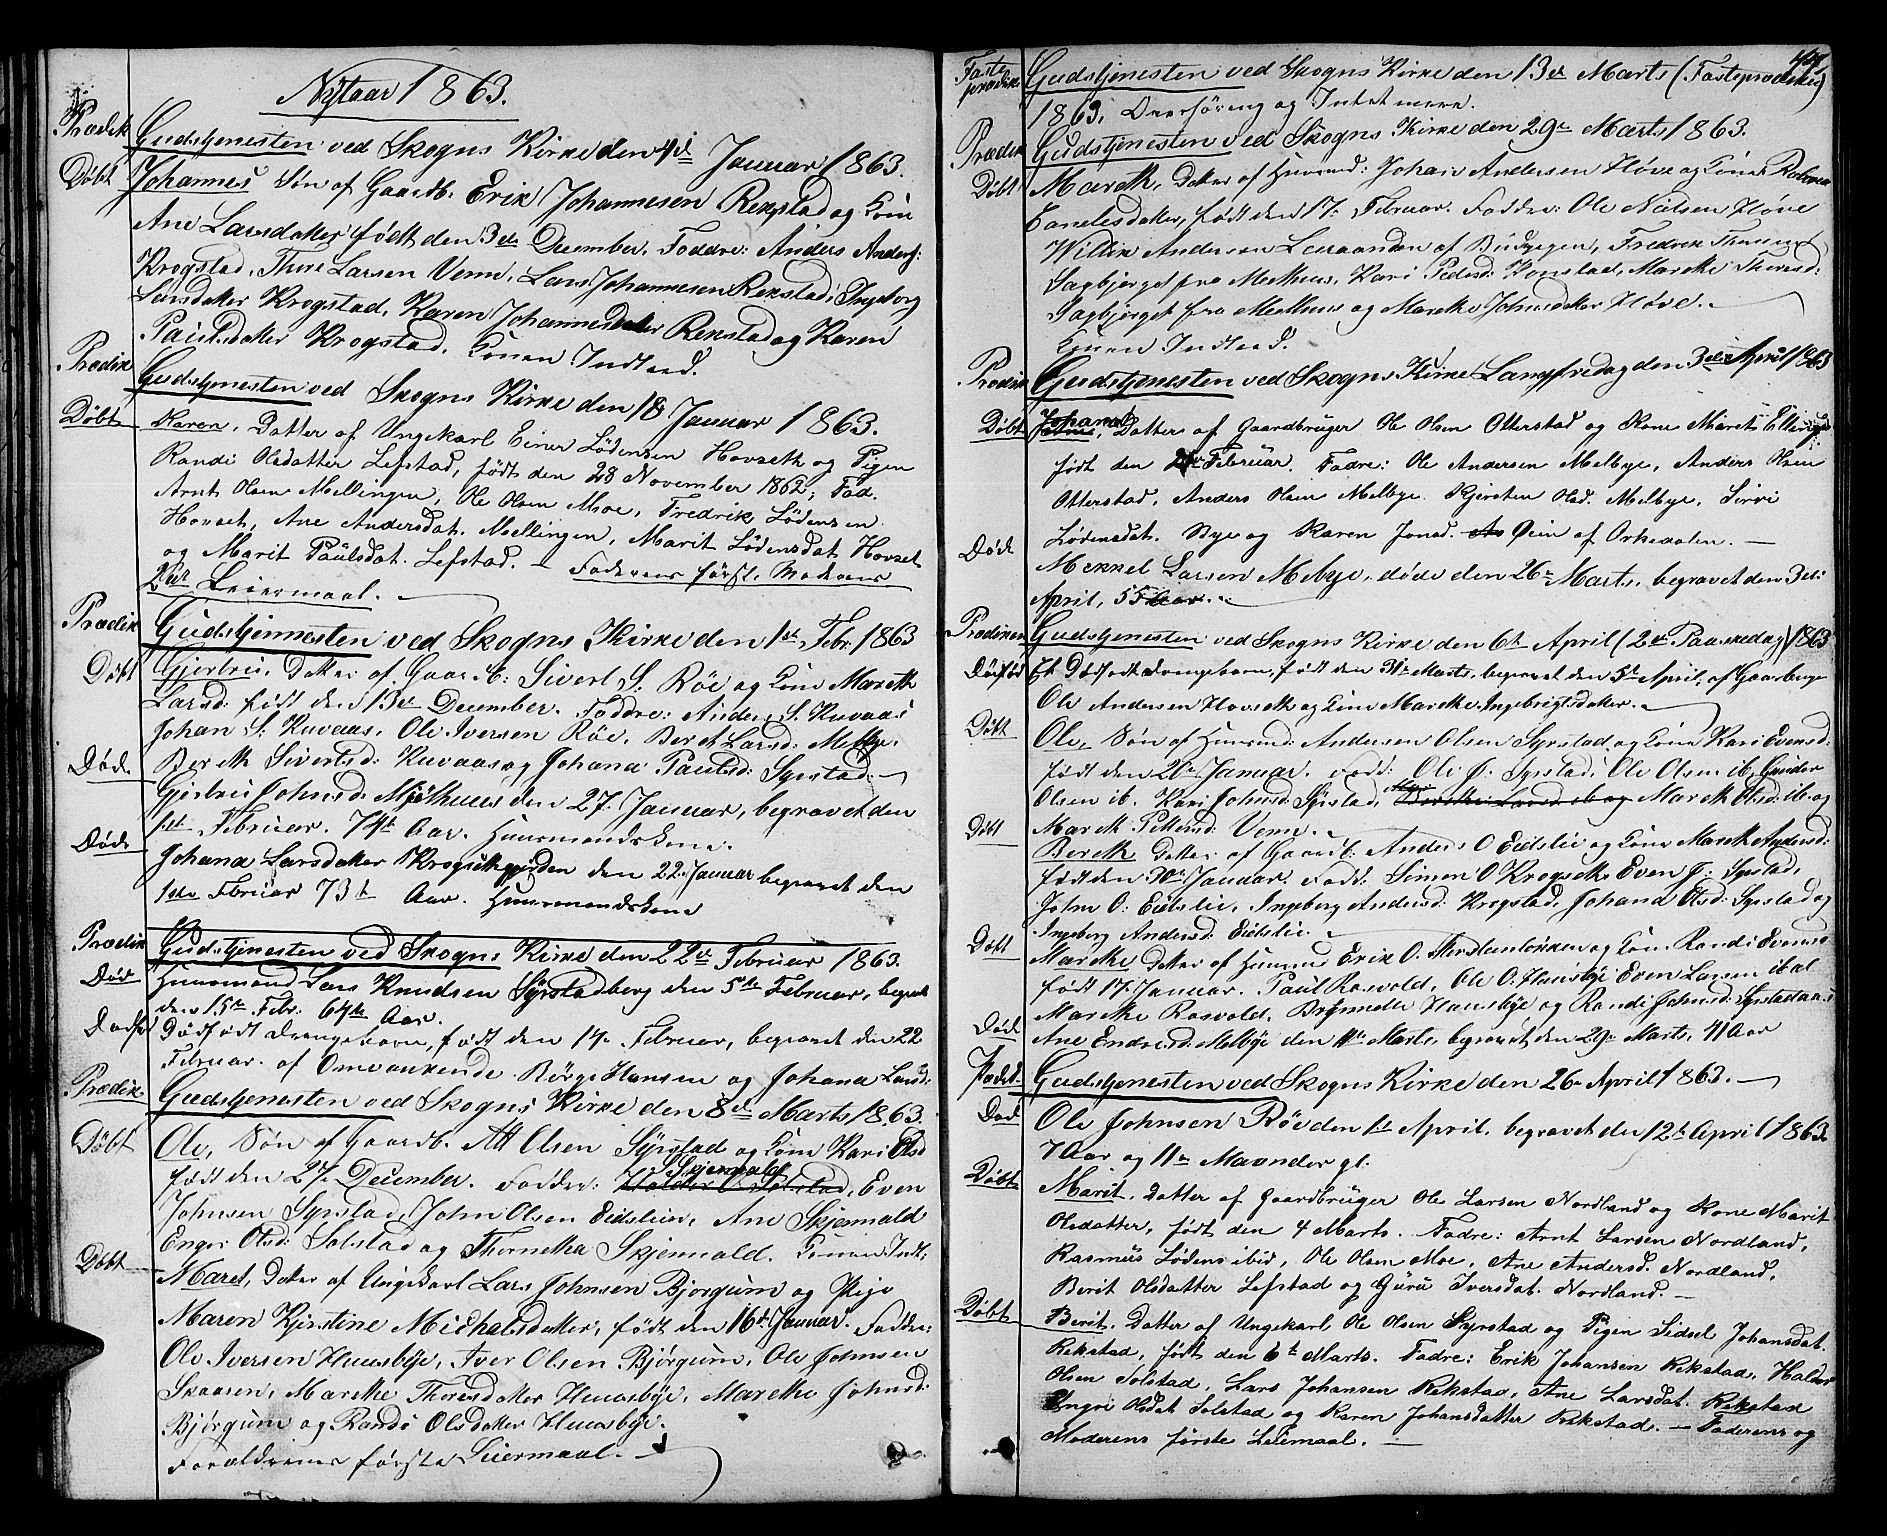 Nytaar 1863.
Prædik Gudstjenesten ved Skogns Kirke den 4de Januar 1863.
Døbt Johannes Søn af Gaardb. Erik Johannesen Rekstad og Kone
Ane Larsdatter født den 3de December. Faddre: Anders Anders:
Krogstad, Thore Larsen Venn, Lars Johannesen Rekstad, Ingborg
Larsdatter Krogstad, Karen Johannesdatter Rekstad og Karen
Paulsdatter Krogstad. Konen Indled.
Prædik Gudstjenesten ved Skogns Kirke den 18 Januar 1863.
Døbt Karen, Datter af Ungekarl Einer Lödensen Hovseth og Pigen
Randi Olsdatter Lefstad, født den 28 November 1862; Fad.
Arnt Olsen Mellingen, Ole Olsen Moe, Fredrik Lödensen
Hovset, Ane Andersdat. Mellingen, Marit Lödensdat Hovset
og Marit Paülsdat. Lefstad. – Faderens første, Moderens
2det Leiermaal.
Prædik Gudstjennesten ved Skogns Kirke den 1ste Febr. 1863
Døbt Gjertru, Datter af Gaardb: Sivert S. Röe og Kone Mareth
Larsd: født den 13de December. Faddre: Anders S. Kuvaas
Johan S. Kuvaas, Ole Iversen Röe, Beret Larsd: Melbye.
Bereth Sivertsd: Kuvaas og Johana Paulsd: Syrstad.
Døde Gjertru Johnsd: Mjöthues den 27. Januar, begravet den
1ste Februar. 74 Aar. Huusmandskone.
Døde Johana Larsdatter den 22. Januar begravet den
1ste Februar 73 Aar. Huusmandskone
Prædik Gudstjenesten ved Skogns Kirke den 22de Februar 1863.
Død Huusmand Lars Knudsen Syrstadberg den 5te Februar, begravet
den 15de Febr. 64 Aar.
Dødfød Dødfødt Drengebarn, født den 14. Februar, begravet den 22
Februar. af Omvankende Börge Hansen og Johana Larsd:
Prædik. Gudstjenesten ved Skogns Kirke den 8de Marts 1863.
Döbt Ole, Søn af Gaardb. Olsen Syrstad og Kone Kari Olsd
født den 27. December. Faddre: Skjenvald Even
Johnsen Syrstad, John Olsen Eidslien, Ane Skjenvald
Olsd: Solstad og Skjenvald. Konen Indl:
Døbt Maret, Datter af Ungekarl Lars Johnsen Bjørgum og Pige
Maren Kjerstine Michalsdatter, født den 16de Januar. Faddre:
Ole Iversen Huusbye, Iver Olsen Bjørgum, Ole Johnsen
Skaasen, Marethe Thoresdatter Huusbye, Marethe Johnsd:
Bjørgum og Randi Olsdatter Huusbye.
Forældrenes første Leiermaal. –
Faste prædik Gudstjenesten ved Skogns Kirke den 13de Marts (Fasteprædiken)
1863. Overhöring og Intet mere.
Prædik Gudstjenesten ved Skogns Kirke den 29de Marts 1863.
Døbt Mareth, Datter af Huusmd: Johan Andersen Høve og Kone
født den 17. Februar. Faddre: Ole Nielsen Høve
Andersen af Budvigen, Fredrik
fra Melhuus, Kari Pedersd: Konstad, Marethe Thoresd:
fra Melhuus og Marethe Johnsdatter Høve. –
Konen Indled.
Prædik Gudstjenesten ved Skogns Kirke Langfredag den 3de April 1863
Døbt Johana, Datter af Gaardbruger Ole Olsen Otterstad og Kone Marit
født den Februar. Fadre: Ole Andersen Melbye, Anders Olsen
Otterstad, Anders Olsen Melbye. Kjersten Olsd. Melbye, Sirri
Lödensdat. Bye og Karen Jonsd. af Orkedalen. –
Døde Mekkel Larsen Melbye, døde den 26de Marts, begravet den 3de
April, 55 Aar.
Prædiken Gudstjenesten ved Skogns Kirke den 6te April (2den Paaskedag) 1863
Dødfød Et Dødfødt Drengebarn, født den 31te Marts, begravet den 5te April, af Gaardbruger
Ole Andersen Hovseth og Kone Marethe Ingebrigtsdatter.
Döbt Ole, Søn af Huusmd: Andersen Olsen Syrstad og Kone Kari Evensd:
født den 20de Januar. Fadd: Ole J: Syrstad, Ole Olsen ib, Gunder
Olsen ib. Kari Johnsd: Syrstad, Mareth Olsd: ib. og
Mareth Pettersd: Venn.
Døbt Bereth Datter af Gaardb: Anders O Eidslie og Kone Mareth Andersd:
født den 30te Januar. Fadd: Simon O Krogseth, Even J: Syrstad,
John O: Eidslie, Ingeborg Andersd: Krogstad, Johana Olsd: Syrstad og
Ingeborg Andersd: Eidslie.
Døbt Marethe Datter af Huusmd Erik O. og Kon. Randi Evensd
født 17. Januar. Paul Rosvold, Ole O. Huusbye Even Larsen ibal
Marethe Rosvold, Huusbye og Randi Johnsd: Syrstadaas
Døde Ane Endresd: Melbye den 11te Marts, begravet den 29de Marts, 71 Aar
Prædik. Gudstjenesten ved Skogns Kirke den 26de April 1863. –
Død Ole Johnsen Röe den 1te April, begravet den 12te April 1863.
7 Aar og 11 Maander gl.
Døbt Marit. Datter af Gaardbrüger Ole Larsen Nordland og Kone Marit
Olsdatter, født den 4 Marts. Fadre: Arnt Larsen Nordland,
Rasmüs Lödens. ibid, Ole Olsen Moe, Ane Andersd. Nordland,
Berit Olsdatter Lefstad og Gürü Iversdat. Nordland. –
Døbt Berit. Datter af Ungekarl Ole Olsen Syrstad og Pigen Sidsel Johansdat.
Rekstad, født den 6te Marts. Fadre: Erik Johansen Rekstad, Haldor
Olsen Solstad, Lars Johansen Rekstad, Ane Larsdat. Rekstad
Ingri Olsdat Solstad og Karen Johansdatter Rekstad. – Faderens og
Moderens første Leiemaal. –